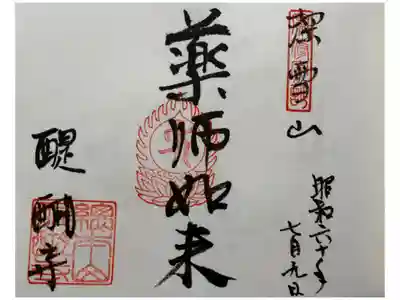 深雪山
昭和六十年
七月九日
薬師如来
醍醐寺